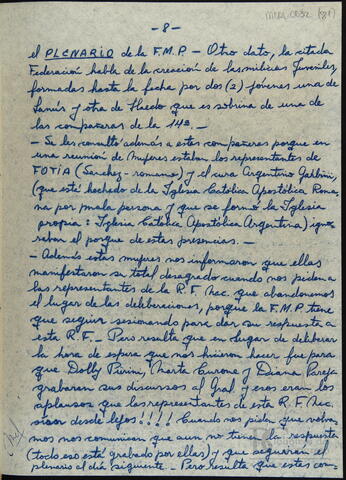 - 8 -
el PLENARIO de la F.M.P. - Otro dato, la citada
Federación habla de la creación de las milicias juveniles
formadas hasta la fecha por dos (2) jóvenes una de
Lanús y otra de Haedo que es sobrina de una de
las compañeras de la 14ª. -
- Se les consultó además a estas compañeras porque en
una reunión de mujeres estaban los representantes de
FOTIA (Sanchez - romano) y el cura Argentino
(que está hechado de la Iglesia Católica Apostólica Roma
na por mala persona y que se formó la Iglesia
propia: Iglesia Católica Apostólica Argentina) igno
raban el porque de estas presencias. -
- Además estas mujeres nos informaron que ellas
manifestaron su total desagrado cuando nos piden a
las representantes de la R.F. Nac. que abandonemos
el lugar de las deliberaciones, porque la F.M.P. tiene
que seguir sesionando para dar su respuesta a
esta R.F. - Pero resulta que en lugar de deliberar
la hora de espera que nos hicieron hacer fue para
que Dolly Pirini, Marta Curone y Diana Pareja
grabaran sus discursos al Gral y esos eran los
aplausos que las representantes de esta R.F. Nac.
desde lejos!!!! Cuando nos piden que
nos comunican que aun no tienen la respuesta
(todo eso está grabado por ellas) y que seguirían el
plenario al día siguiente. - Pero resulta que estas com-